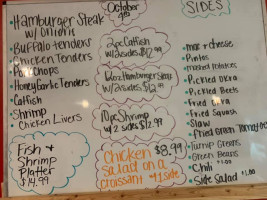 Hamburger Steak
w/ onions
Buffalo tenders
Chicken Tenders
Pork chops
Honey Garlic Tenders
Catfish
Shrimp
Chicken Livers
Fish &
Shrimp
Platter
$14.99
October
2pc Catfish
w/ 2 sides $12.99
6oz Hamburger Steak
w/ 2 sides $12.99
10pc Shrimp
w/ 2 sides $12.99
Chicken $8.99
Salad on a
Croissant + 1 side
SIDES
Mac & cheese
Pintos
Mashed Potatoes
Pickled Okra
Pickled Beets
Fried Okra
Fried Squash
Slaw
Fried Green Tomatoes
Turnip Greens
Green Beans
Chili $1.00
Side Salad $1.00